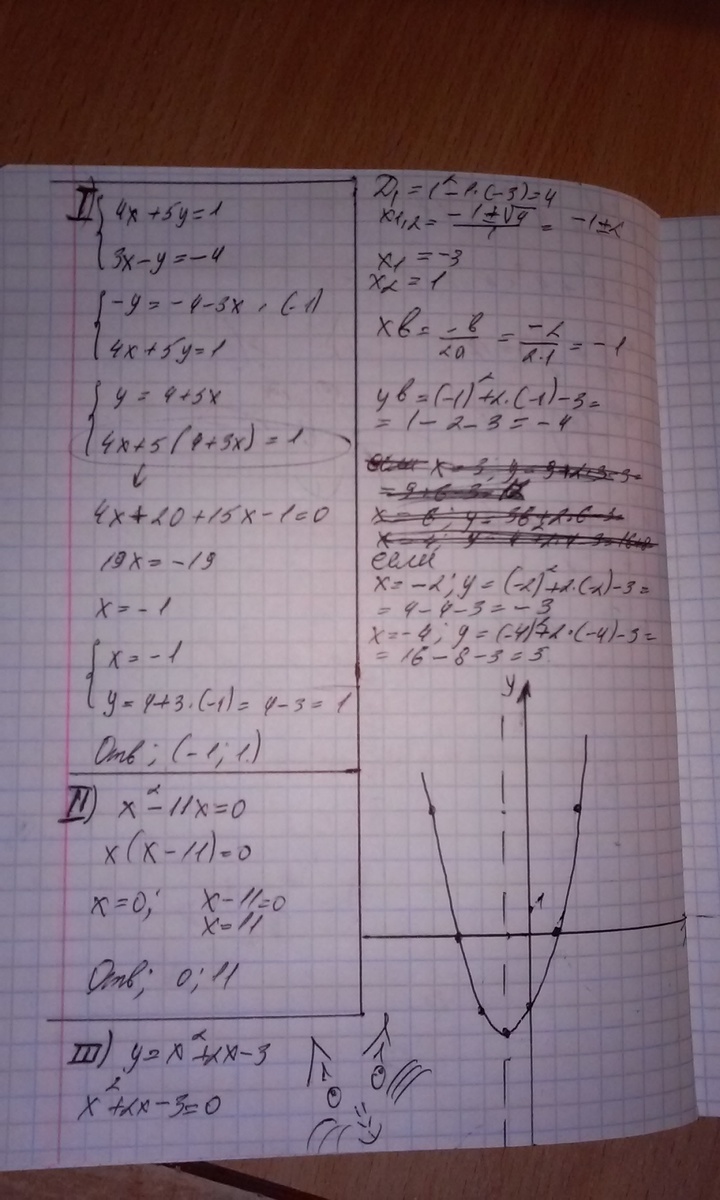 I) 4x+5y=1
3x-y=-4
-y=-4-3x · (-1)
4x+5y=1
y=4+5x
4x+5(4+3x)=1
4x+20+15x-1=0
19x=-19
x=-1
x=-1
y=4+3·(-1)=4-3=1
Отв; (-1; 1.)
II) x²-11x=0
x(x-11)=0
x=0; x-11=0
x=11
Отв; 0; 11
III) y=x²+2x-3
x²+2x-3=0
D₁=1²-1·(-3)=4
x1,2=(-1±√4)/1=-1±2
x1=-3
x2=1
xв=-в/2a=-2/2·1=-1
yв=(-1)²+2·(-1)-3=
=1-2-3=-4
если
x=-2; y=(-2)²+2·(-2)-3=
=4-4-3=-3
x=-4; y=(-4)²+2·(-4)-3=
=16-8-3=5
y
1